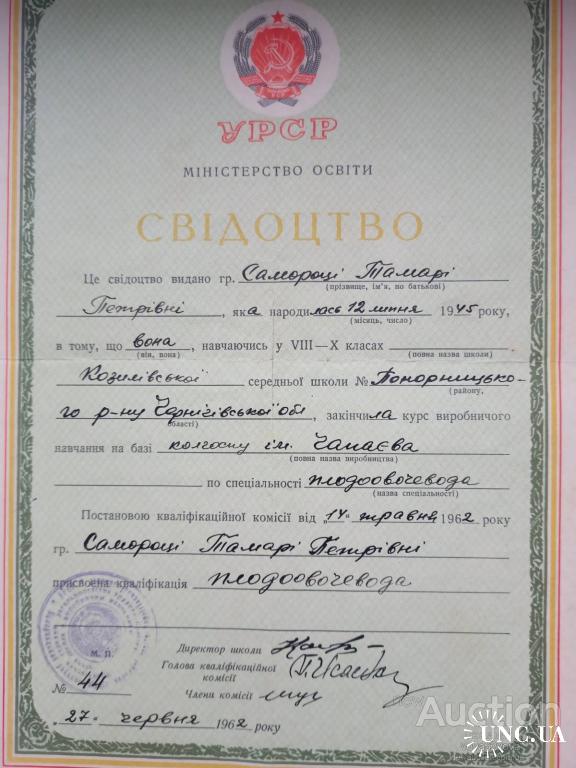 УРСР
МІНІСТЕРСТВО ОСВІТИ
СВІДОЦТВО
Це свідоцтво видано гр. Самороці Тамарі
(прізвище, ім'я, по батькові)
Петрівні, яка народилась 12 липня 1945 року,
(місяць, число)
в тому, що вона, навчаючись у VIII—X класах
(він, вона) (повна назва школи)
Козилівської середньої школи № Понорницько-
(району,
го р-ну Чернігівської обл, закінчила курс виробничого
області)
навчання на базі колгоспу ім. Чапаєва
(повна назва виробництва)
по спеціальності плодоовочевода
(назва спеціальності)
Постановою кваліфікаційної комісії від „14" травня 1962 року
гр. Самороці Тамарі Петрівні
присвоєна кваліфікація плодоовочевода
М. П.
Директор школи
Голова кваліфікаційної
комісії
Члени комісії
№ 44
„27" червня 1962 року
Auction
UNC.UA